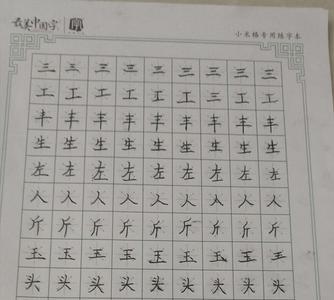 最美中国字
小米格专用练字本
三 三 三 三 三 三 三 三 三
工 工 工 工 工 工 工 工 工
丰 丰 丰 丰 丰 丰 丰 丰 丰
生 生 生 生 生 生 生 生 生
左 左 左 左 左 左 左 左 左
人 人 人 人 人 人 人 人 人
斤 斤 斤 斤 斤 斤 斤 斤 斤
玉 玉 玉 玉 玉 玉 玉 玉 玉
头 头 头 头 头 头 头 头 头